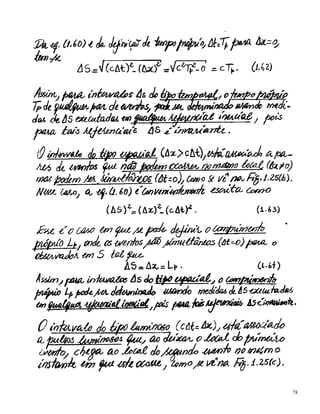 Da eq. (1.60) e da definição de tempo próprio, Δt=Tp para Δx=0,
tem-se
ΔS = √(cΔt)² - (Δx)² = √c²Tp² - 0 = cTp. (1.62)
Assim, para intervalos Δs do tipo temporal, o tempo próprio
Tp de qualquer par de eventos, pode ser determinado usando medi-
das de ΔS executadas em qualquer referencial inercial, pois
para tais referenciais ΔS é invariante.
O intervalo do tipo espacial (Δx > cΔt), está associado a pa-
res de eventos que não podem ocorrer no mesmo local (Δx≠0)
mas podem ser simultâneos (Δt=0), como se vê na Fig. 1.25(b).
Nesse caso, a eq. (1.60) é convenientemente escrita como
(ΔS)² = (Δx)² - (cΔt)². (1.63)
Esse é o caso em que se pode definir o comprimento
próprio Lp, onde os eventos são simultâneos (Δt=0) para o
observador em S tal que
ΔS = Δx = Lp. (1.64)
Assim, para intervalos Δs do tipo espacial, o comprimento
próprio Lp pode ser determinado usando medidas de ΔS executadas
em qualquer referencial inercial, pois para tais referenciais ΔS é invariante.
O intervalo do tipo luminoso (cΔt = Δx), está associado
a pulsos luminosos que, ao deixar o local do primeiro
evento, chega ao local do segundo evento no mesmo
instante em que este ocorre, como se vê na Fig. 1.25(c).
78